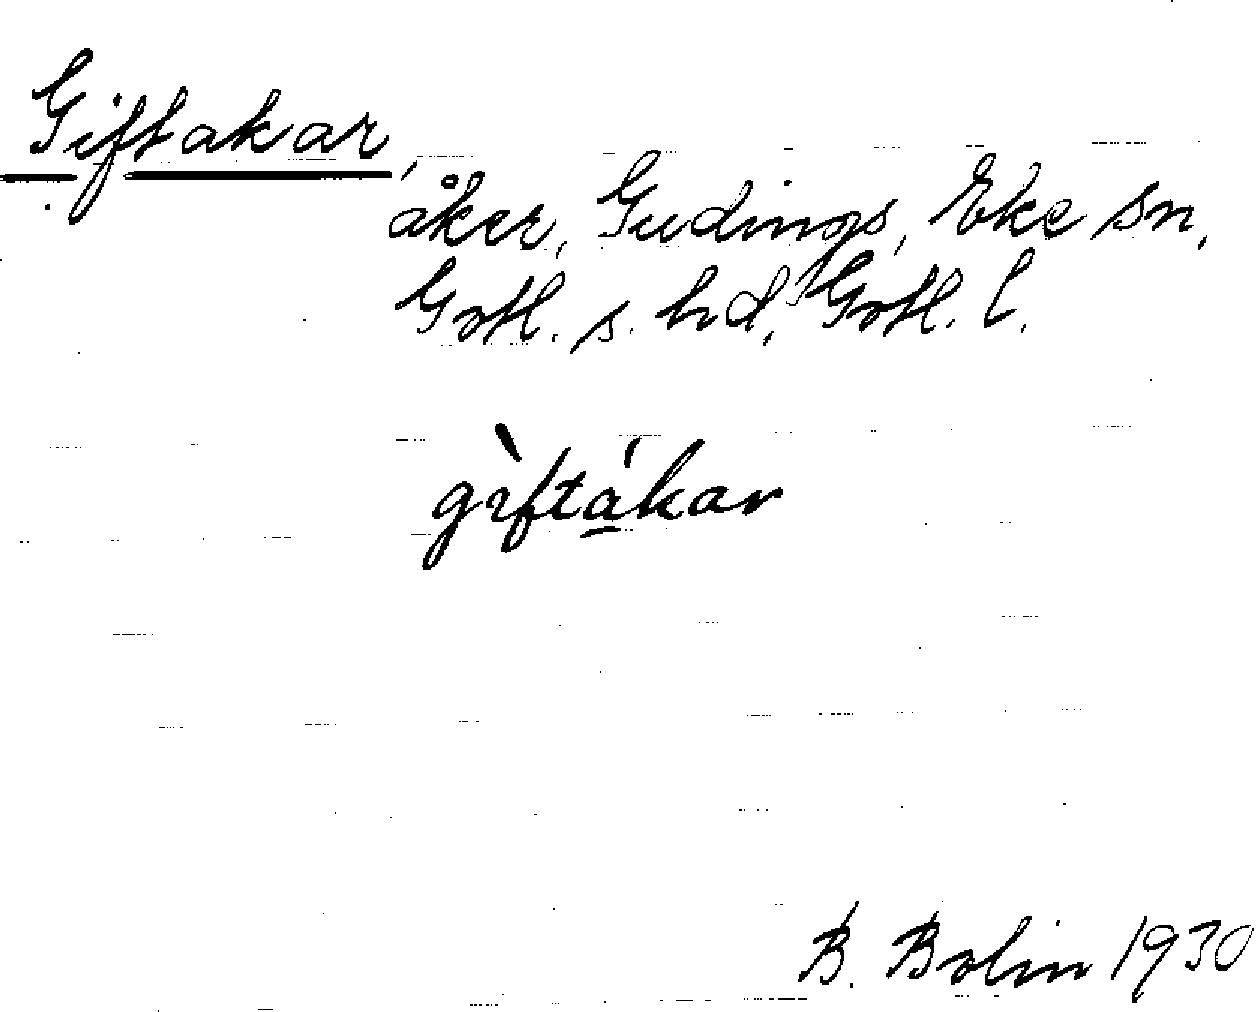 Giftakar,
åker, Gudings, Eke sn,
Gotl. s. hd, Gotl. l.
gìftákar
B. Bolin 1930